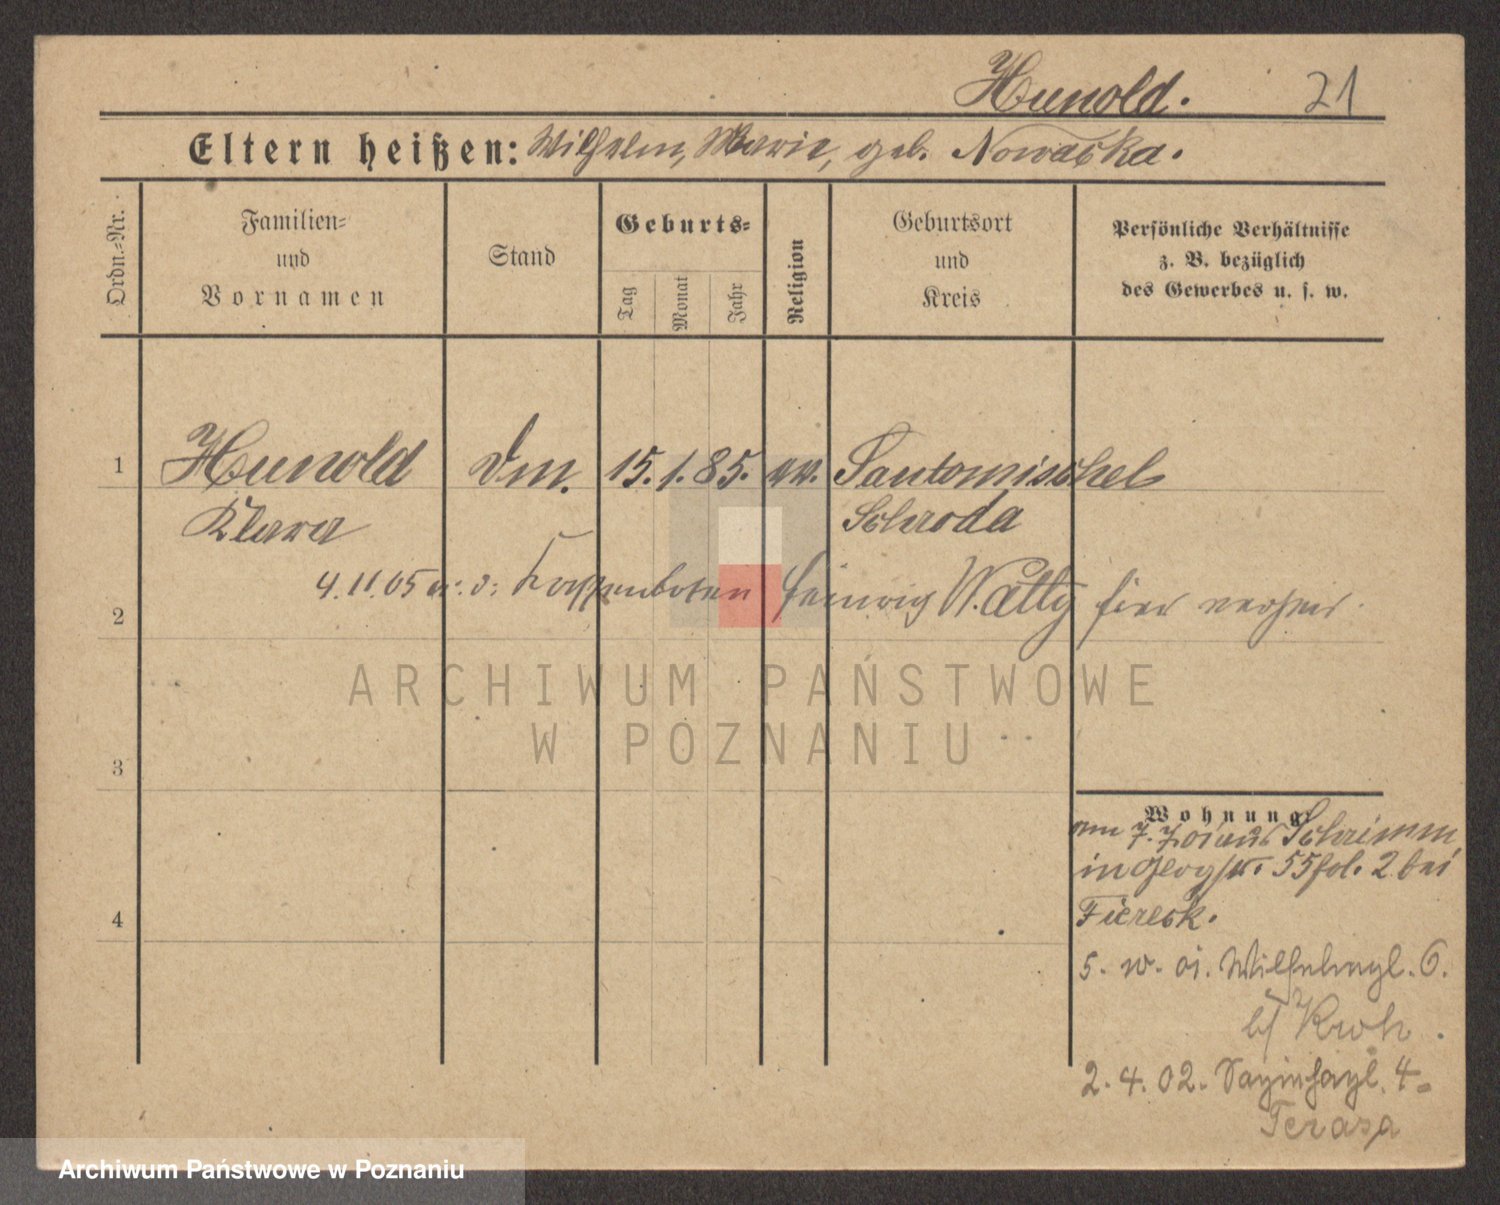 Hunold. 21
Eltern heißen: Wilhelm, Marie, geb. Nowacka.
Ordn.-Nr.
Familien-
und
Vornamen
Stand
Geburts-
Tag
Monat
Jahr
Religion
Geburtsort
und
Kreis
Persönliche Verhältnisse
z. B. bezüglich
des Gewerbes u. s. w.
1 Hunold Dm. 15. 1. 85. ev. Santomischel
Klara Schroda
4. 11. 05 m. d. Kassenboten Heinrich Watty hier verheir.
2
ARCHIWUM PAŃSTWOWE
W POZNANIU
3
Wohnung
am 7. 7. 01 aus Schrimm
in 55 fol. 2 bei
4
5. 01. Wilhelmpl. 6.
b/ Kroh.
2. 4. 02. Sapiehapl. 4
Archiwum Państwowe w Poznaniu